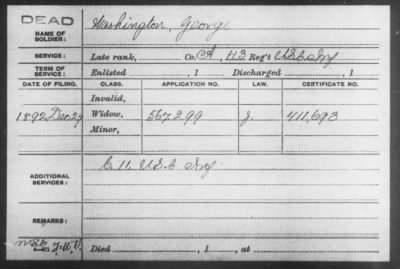 DEAD
NAME OF SOLDIER: Washington, George
SERVICE: Late rank, Co. A, 43 Reg't U.S.C. Inf
TERM OF SERVICE: Enlisted , 1 Discharged , 1
DATE OF FILING. CLASS. APPLICATION NO. LAW. CERTIFICATE NO.
Invalid,
1892 Dec 29 Widow, 567299 J. 411,693
Minor,
ADDITIONAL SERVICES: C. U.S.C. Inf
REMARKS:
Died , 1 , at